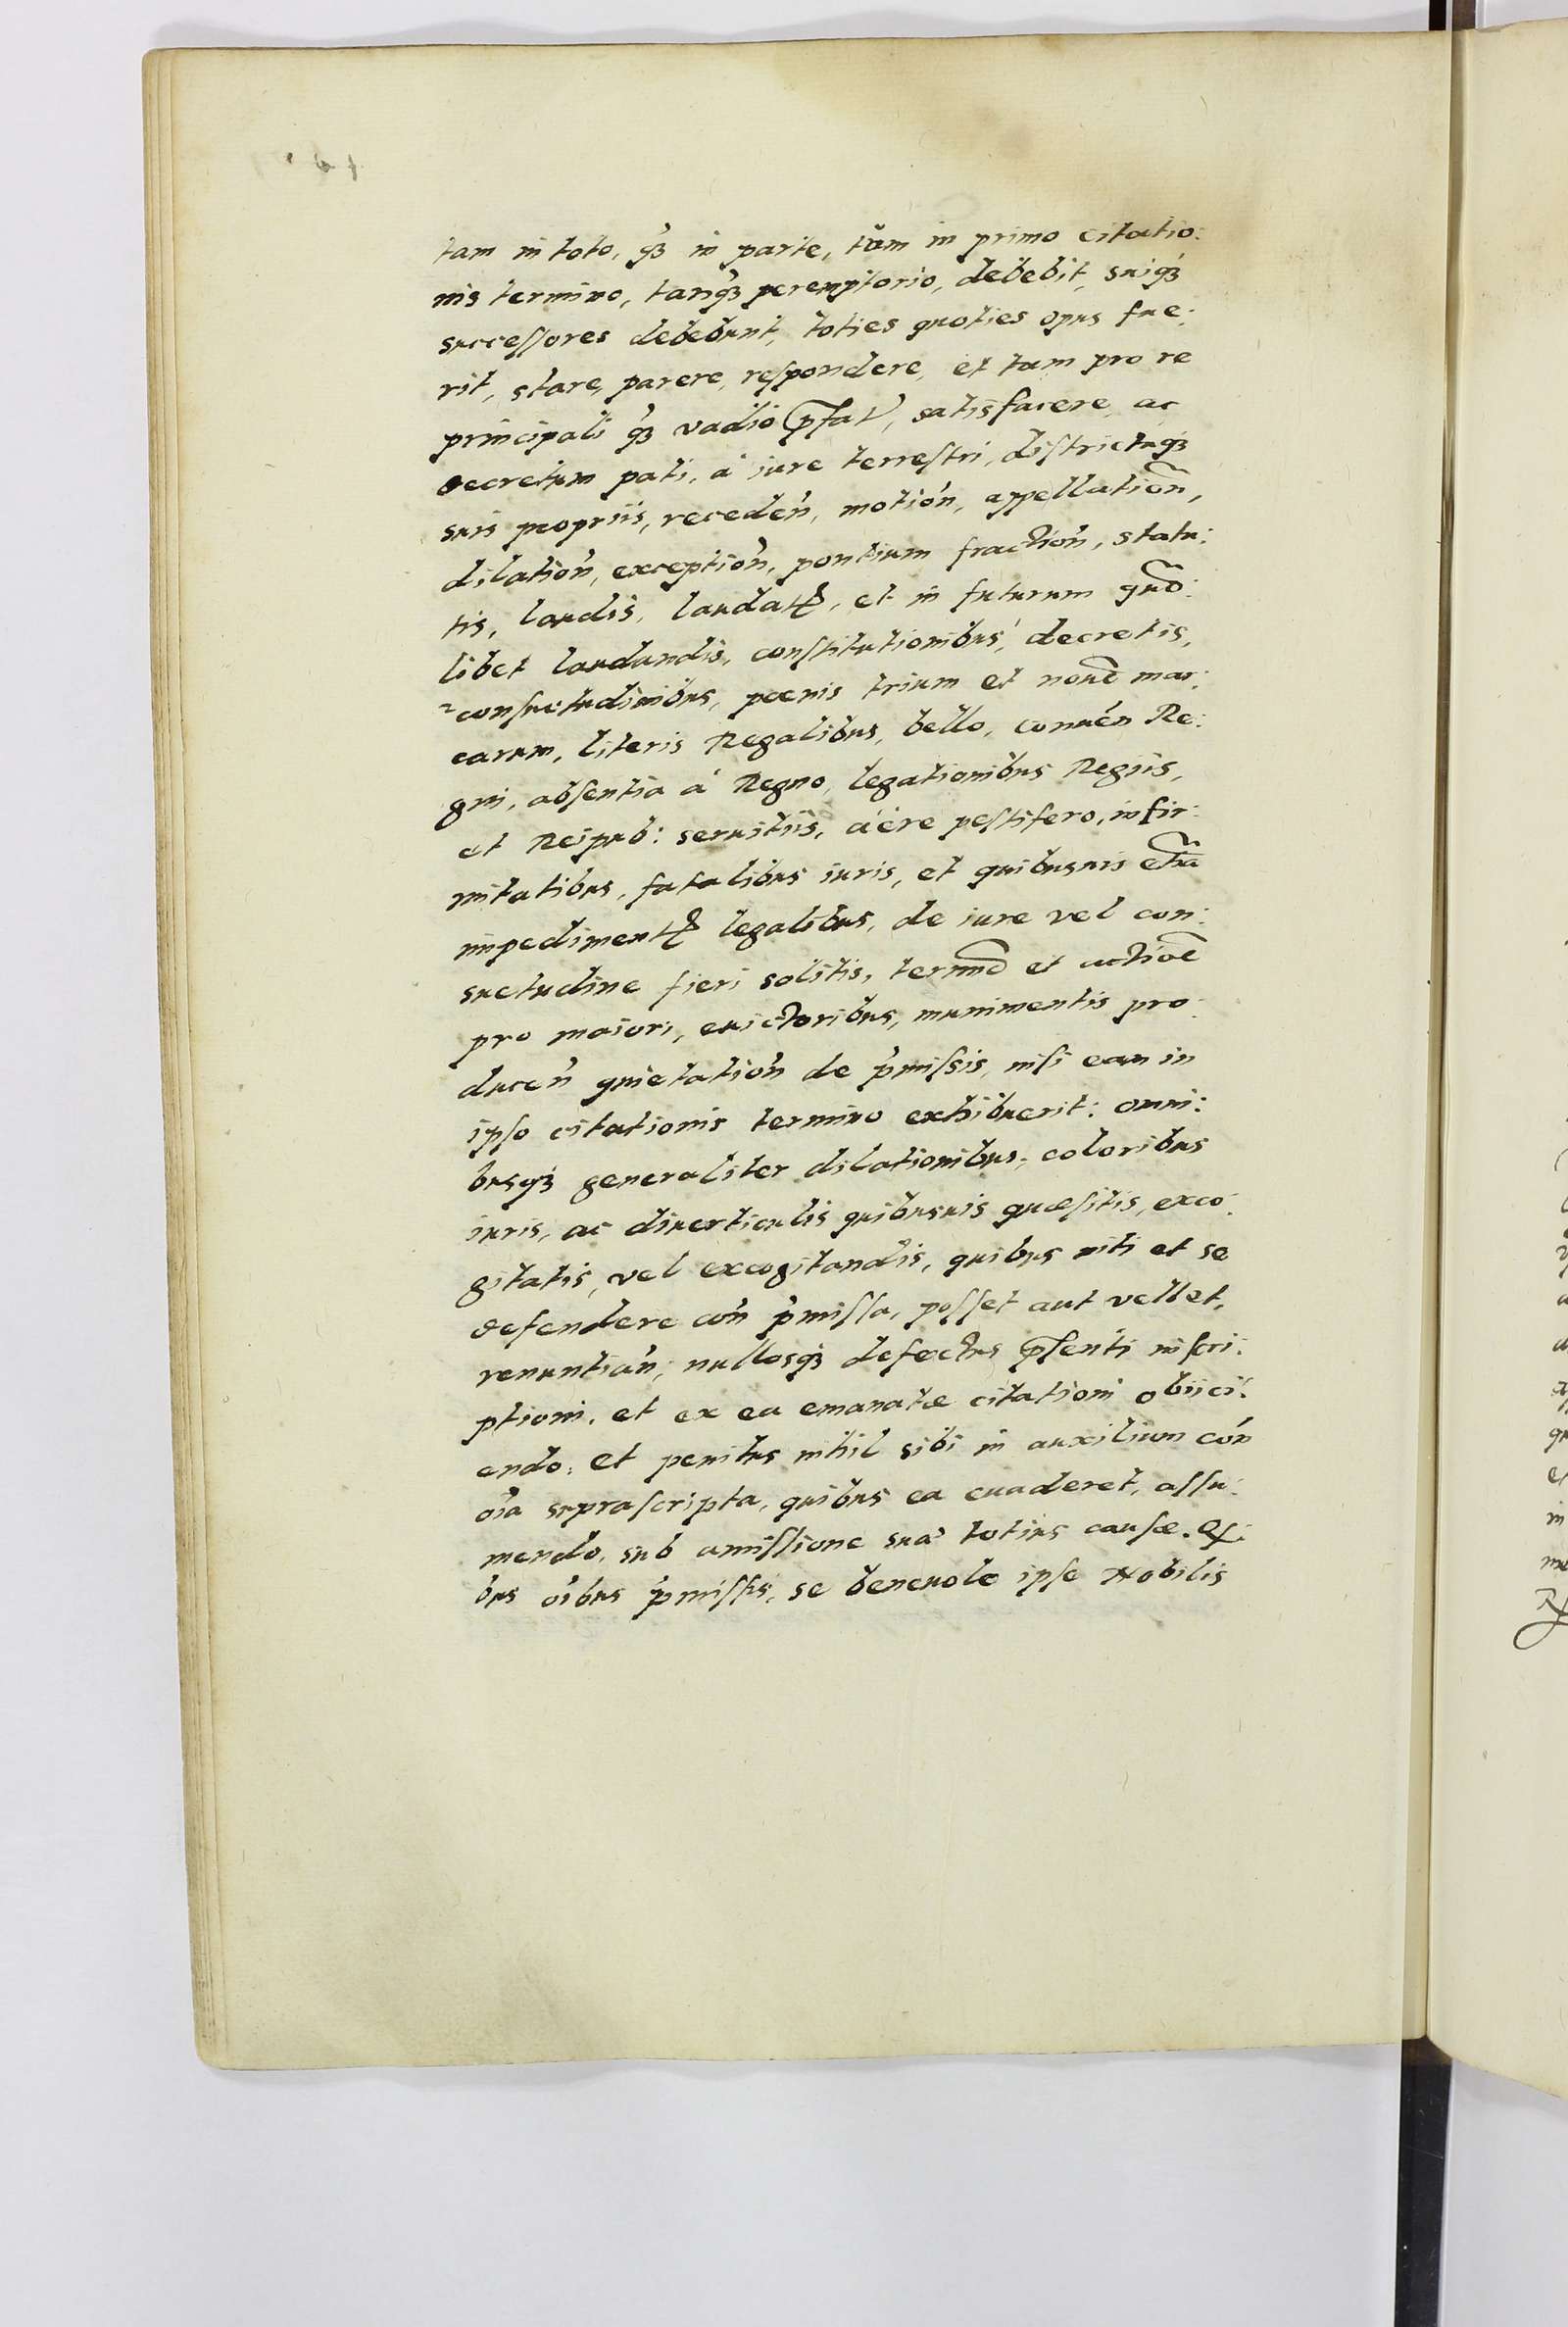 tam in toto, q̃3 in parte, tam in primo citatio:
nis termino, tanq̃3 peremptorio, debebit, suiq3
successores debebunt, toties quoties opus fue:
rit, stare, parere, respondere, et tam pro re
principali q̃3 vadio p̃fat, satisfacere, ac
decretum pati, à iure terrestri, districtuq3
suis propriis, receden̄, motion̄, appellation̄,
dilation̄, exception̄, pontium fraction̄, statu:
tis, laudis, laudatꝭ, et in futurum quõ:
libet laudandis, constitutionibus, decretis,
consuetudinibus, poenis trium et nouẽ mar:
carum, literis Regalibus, bello, conuen̄ Re:
gni, absentia à Regno, legationibus Regiis,
et Reipub: seruitiis, aëre pestifero, infir:
mitatibus, fatalibus iuris, et quibusuis etiã
impedimentꝭ legalibus, de iure vel con:
suetudine fieri solitis, terminõ et actiõe
pro maiori, euictoribus, munimentis pro:
ducen̄ quietation̄ de p̃missis, nisi eam in
ipso citationis termino exhibuerit: omni:
busq3 generaliter dilationibus, coloribus
iuris, ac diuerticulis quibusuis quæsitis, exco:
gitatis, vel excogitandis, quibus niti et se
defendere con̄ p̃missa, posset aut vellet,
renuntian̄, nullosq3 defectus p̃senti inscri:
ptioni, et ex ea emanatæ citationi obiici:
endo, et penitus nihil sibi in auxilium con̄
oĩa suprascripta, quibus ea euaderet, assu:
mendo, sub amissione sua totius causæ. Q̃:
bus oĩbus p̃missis, se beneuole ipse Nobilis